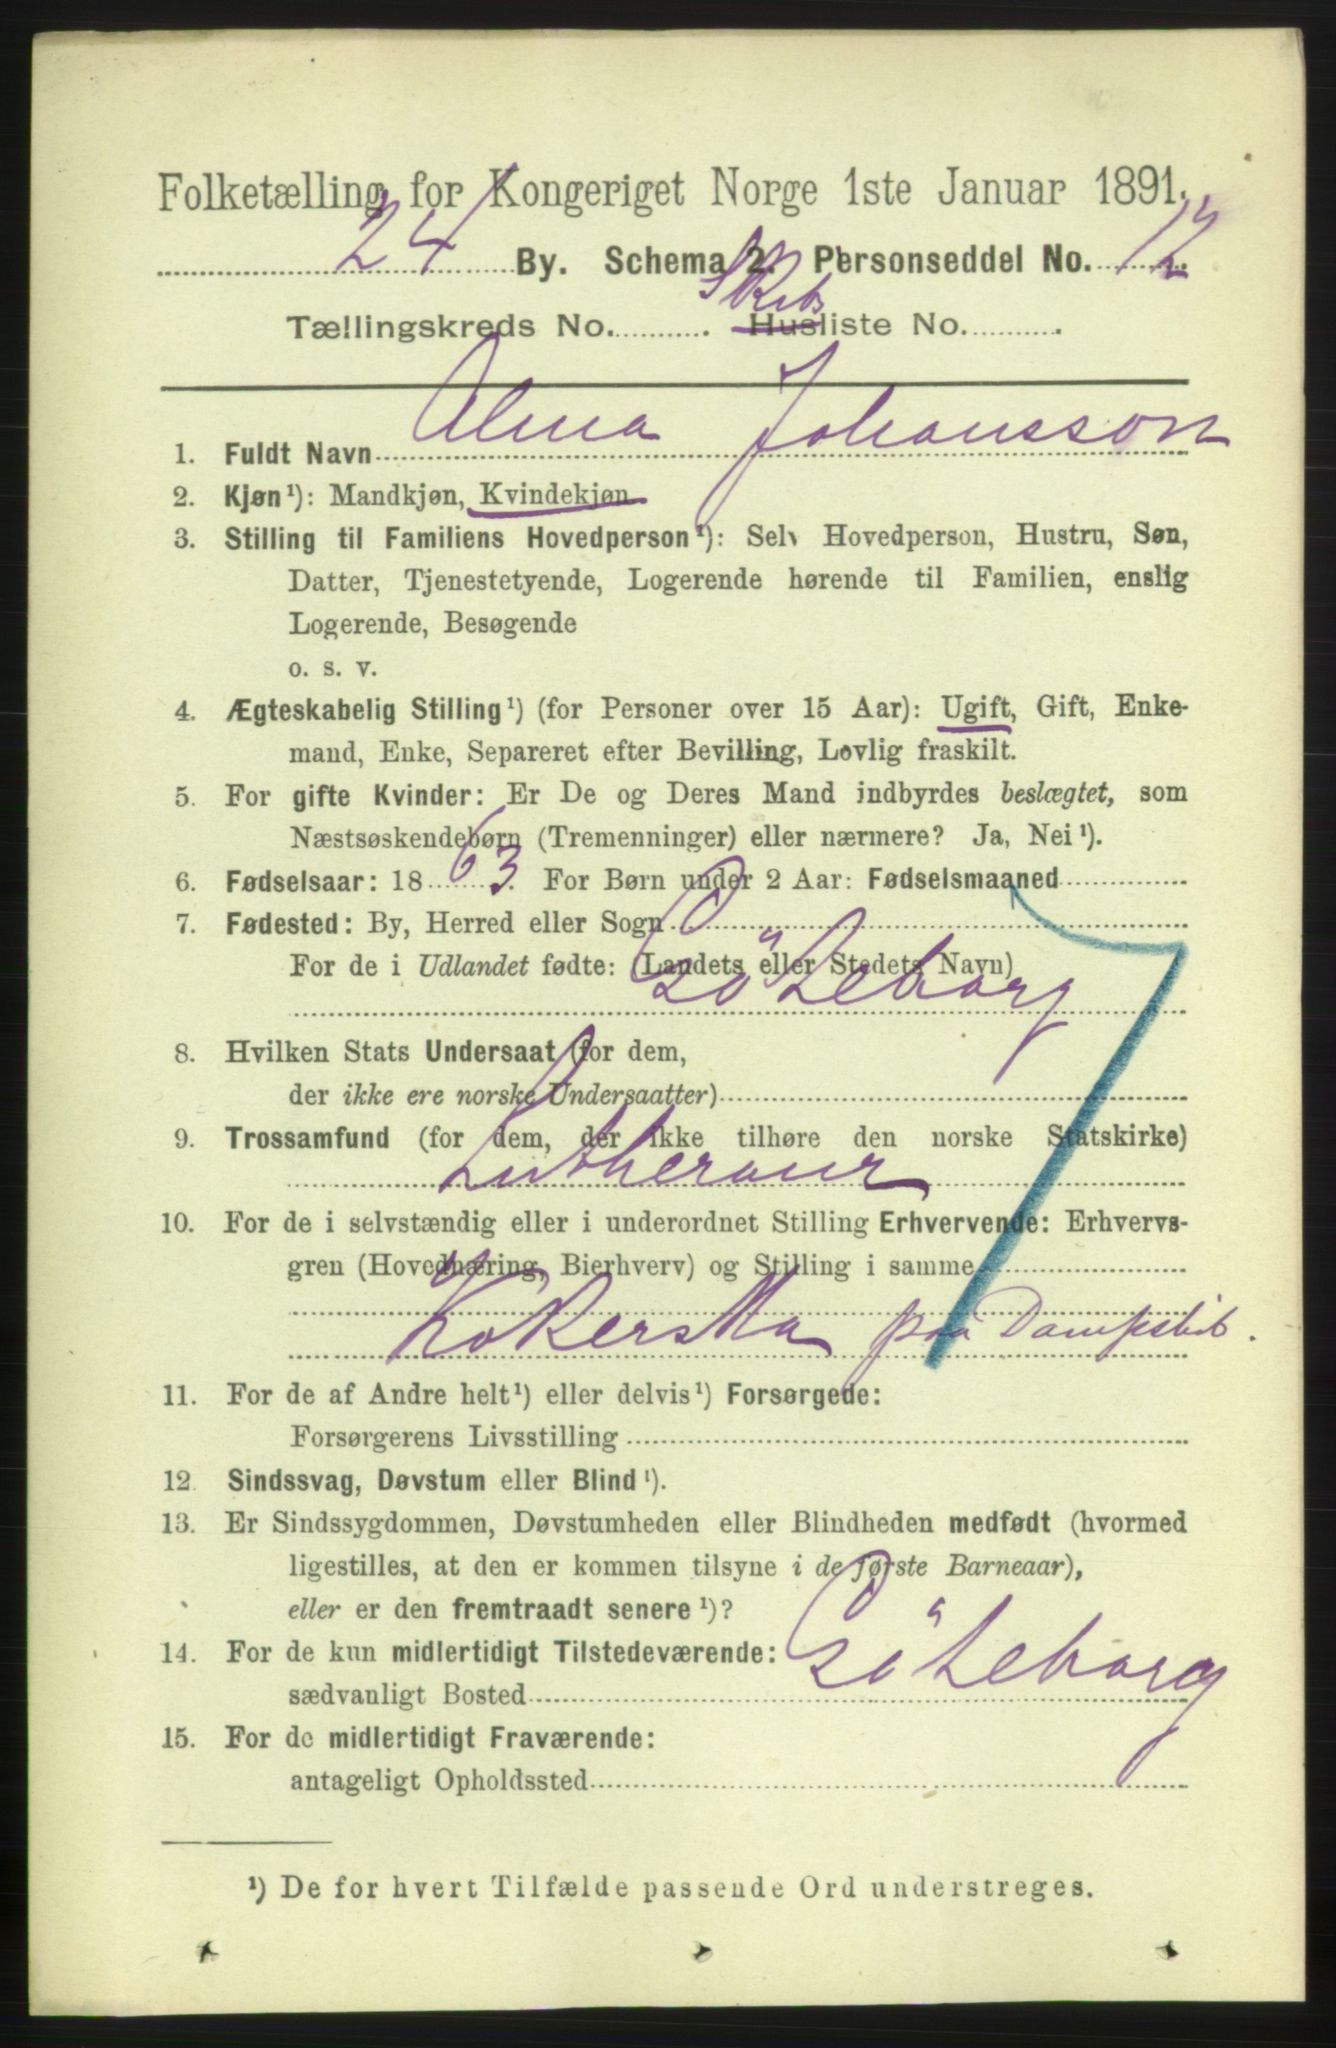 Folketælling for Kongeriget Norge 1ste Januar 1891.
24 By. Schema 2. Personseddel No. 12
Skibs
Tællingskreds No. . Husliste No. .
1. Fuldt Navn Alma Johansson
2. Kjøn¹): Mandkjøn, Kvindekjøn
3. Stilling til Familiens Hovedperson¹): Selv Hovedperson, Hustru, Søn,
Datter, Tjenestetyende, Logerende hørende til Familien, enslig
Logerende, Besøgende
o. s. v.
4. Ægteskabelig Stilling¹) (for Personer over 15 Aar): Ugift, Gift, Enke-
mand, Enke, Separeret efter Bevilling, Lovlig fraskilt.
5. For gifte Kvinder: Er De og Deres Mand indbyrdes beslægtet, som
Næstsøskendebørn (Tremenninger) eller nærmere? Ja, Nei¹).
6. Fødselsaar: 1863. For Børn under 2 Aar: Fødselsmaaned
7. Fødested: By, Herred eller Sogn
For de i Udlandet fødte: (Landets eller Stedets Navn)
Göteborg
8. Hvilken Stats Undersaat (for dem,
der ikke ere norske Undersaatter)
9. Trossamfund (for dem, der ikke tilhøre den norske Statskirke)
Lutheraner
10. For de i selvstændig eller i underordnet Stilling Erhvervende: Erhvervs-
gren (Hovednæring, Bierhverv) og Stilling i samme
Kokerska paa Dampskib.
11. For de af Andre helt¹) eller delvis¹) Forsørgede:
Forsørgerens Livsstilling
12. Sindssvag, Døvstum eller Blind¹).
13. Er Sindssygdommen, Døvstumheden eller Blindheden medfødt (hvormed
ligestilles, at den er kommen tilsyne i de første Barneaar),
eller er den fremtraadt senere¹)?
14. For de kun midlertidigt Tilstedeværende:
sædvanligt Bosted Göteborg
15. For de midlertidigt Fraværende:
antageligt Opholdssted
¹) De for hvert Tilfælde passende Ord understreges.